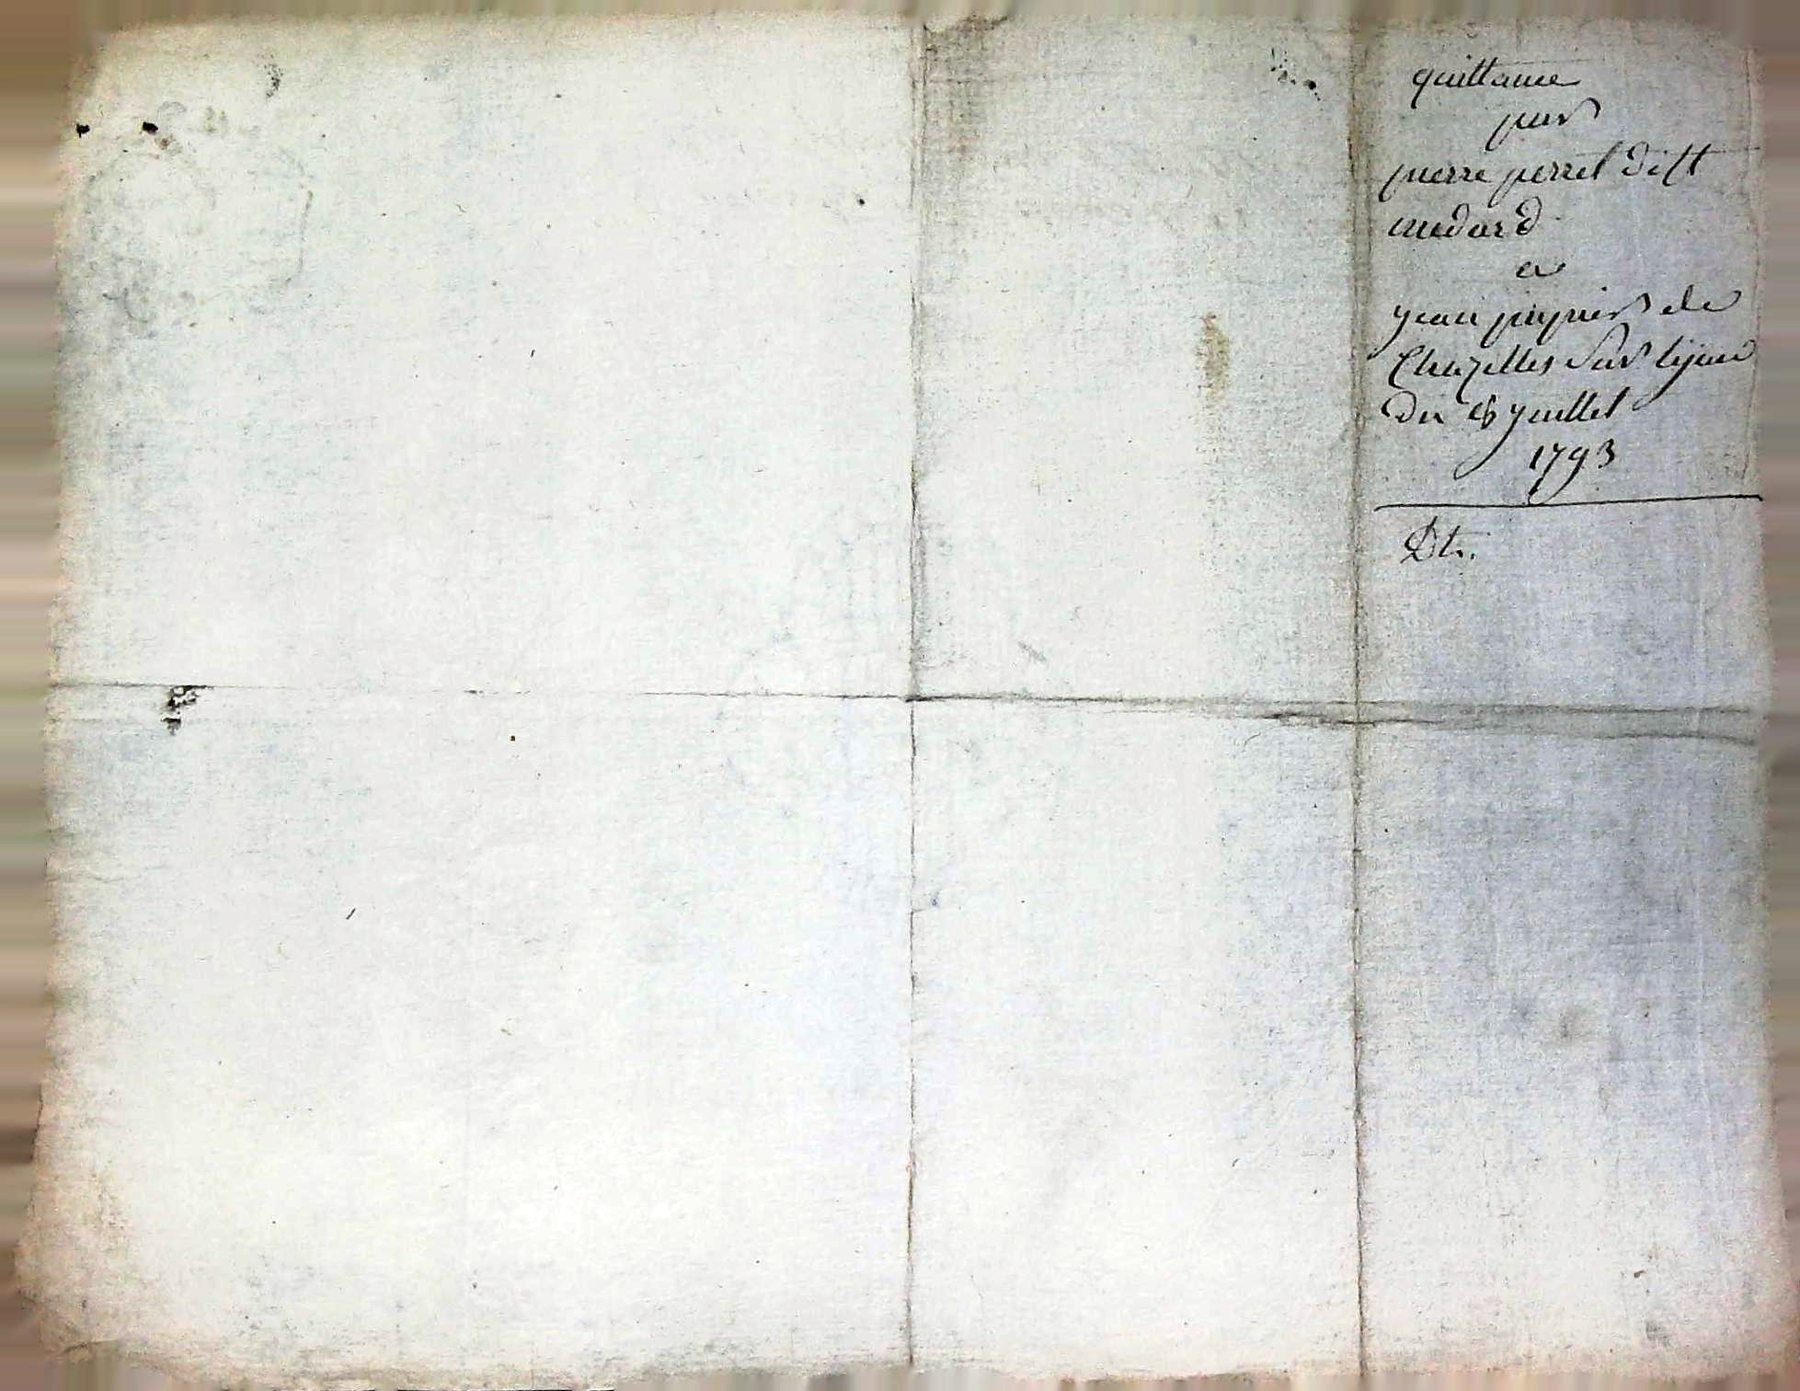 quittance
par
pierre perret de st
medard
a
jean pupier de
Chazelles sur lijon
du 8 juillet
1793